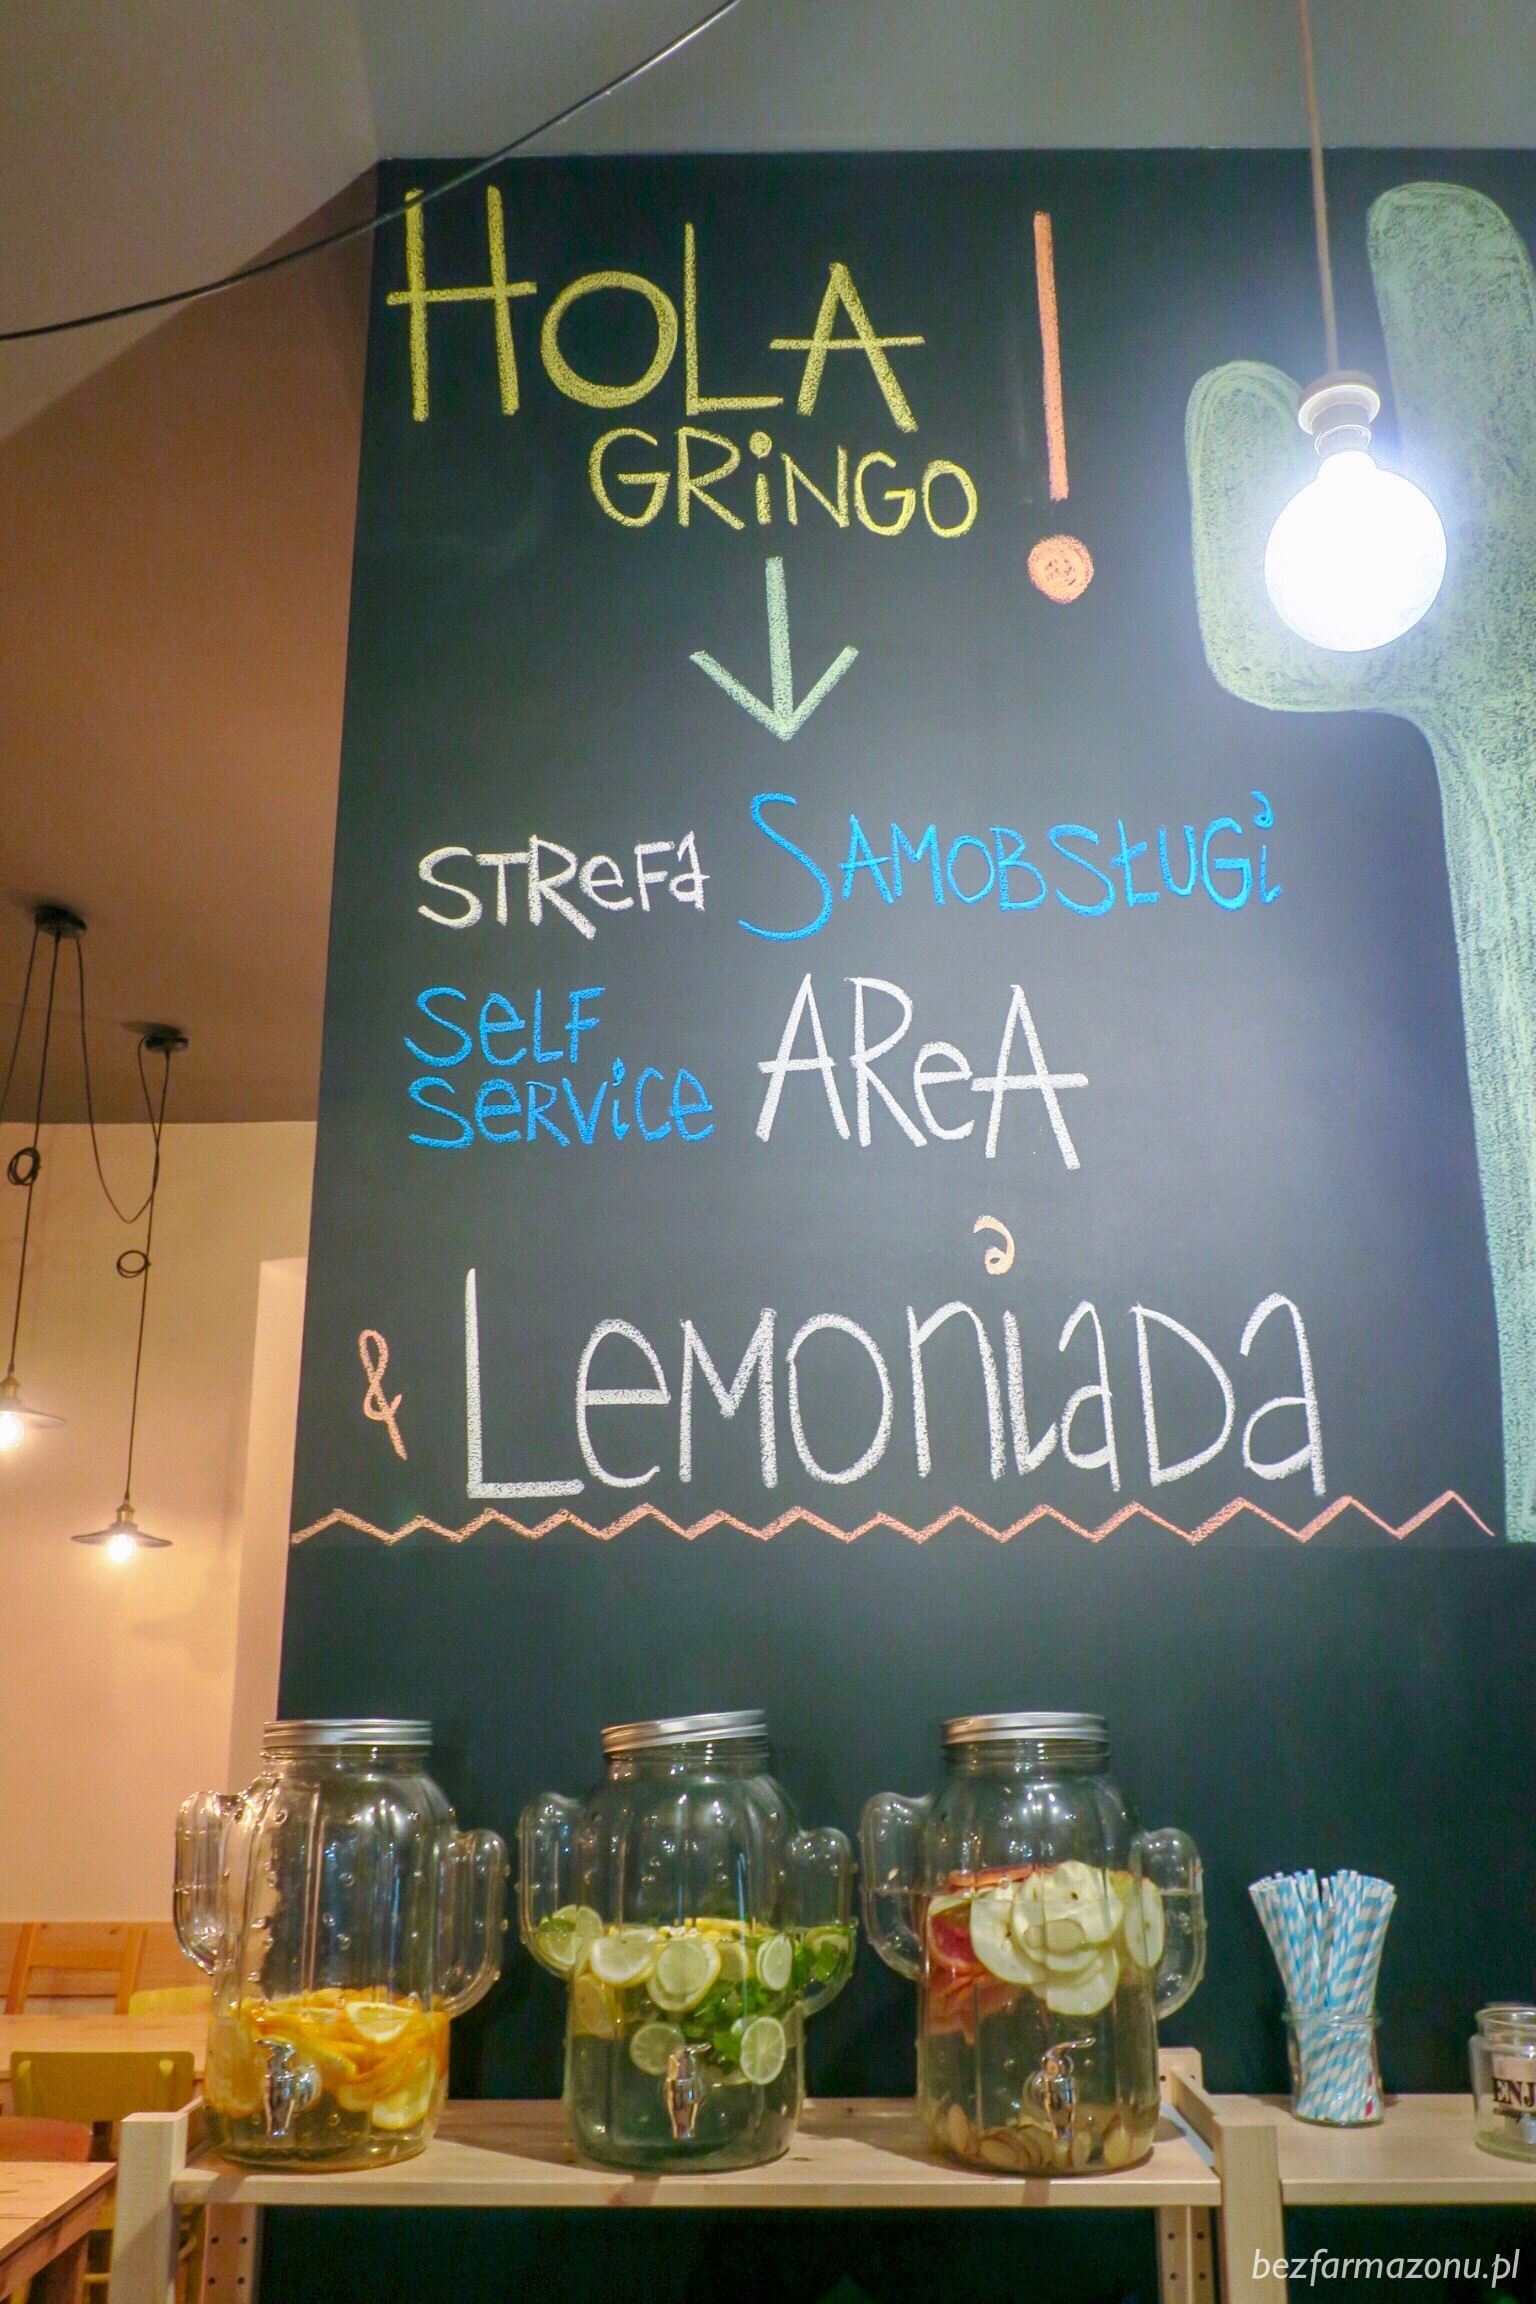 HOLA !
GRiNGO
STReFa SAMOBSŁUGi
SeLF AReA
SeRViCe
& LeMoniaDa
ENJ
bezfarmazonu.pl